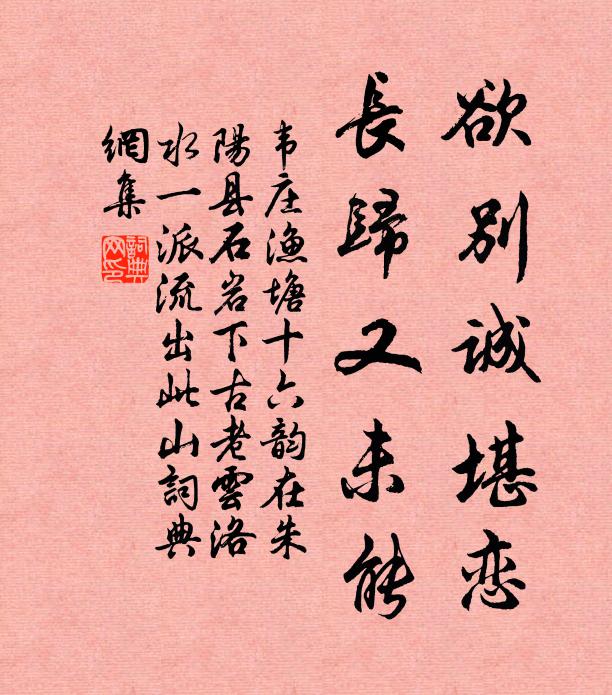 欲别诚堪恋
長歸又未能
韦庄漁塘十六韵在朱
陽县石岩下古老雲洛
水一派流出此山詞典
網集
詞典网印